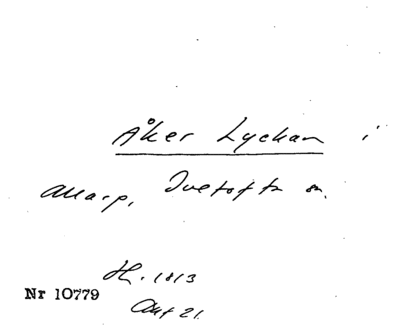 Åker Lyckan i
Allarp, Tvetofta sn.
H. 1813
Nr 10779
Akt 21.